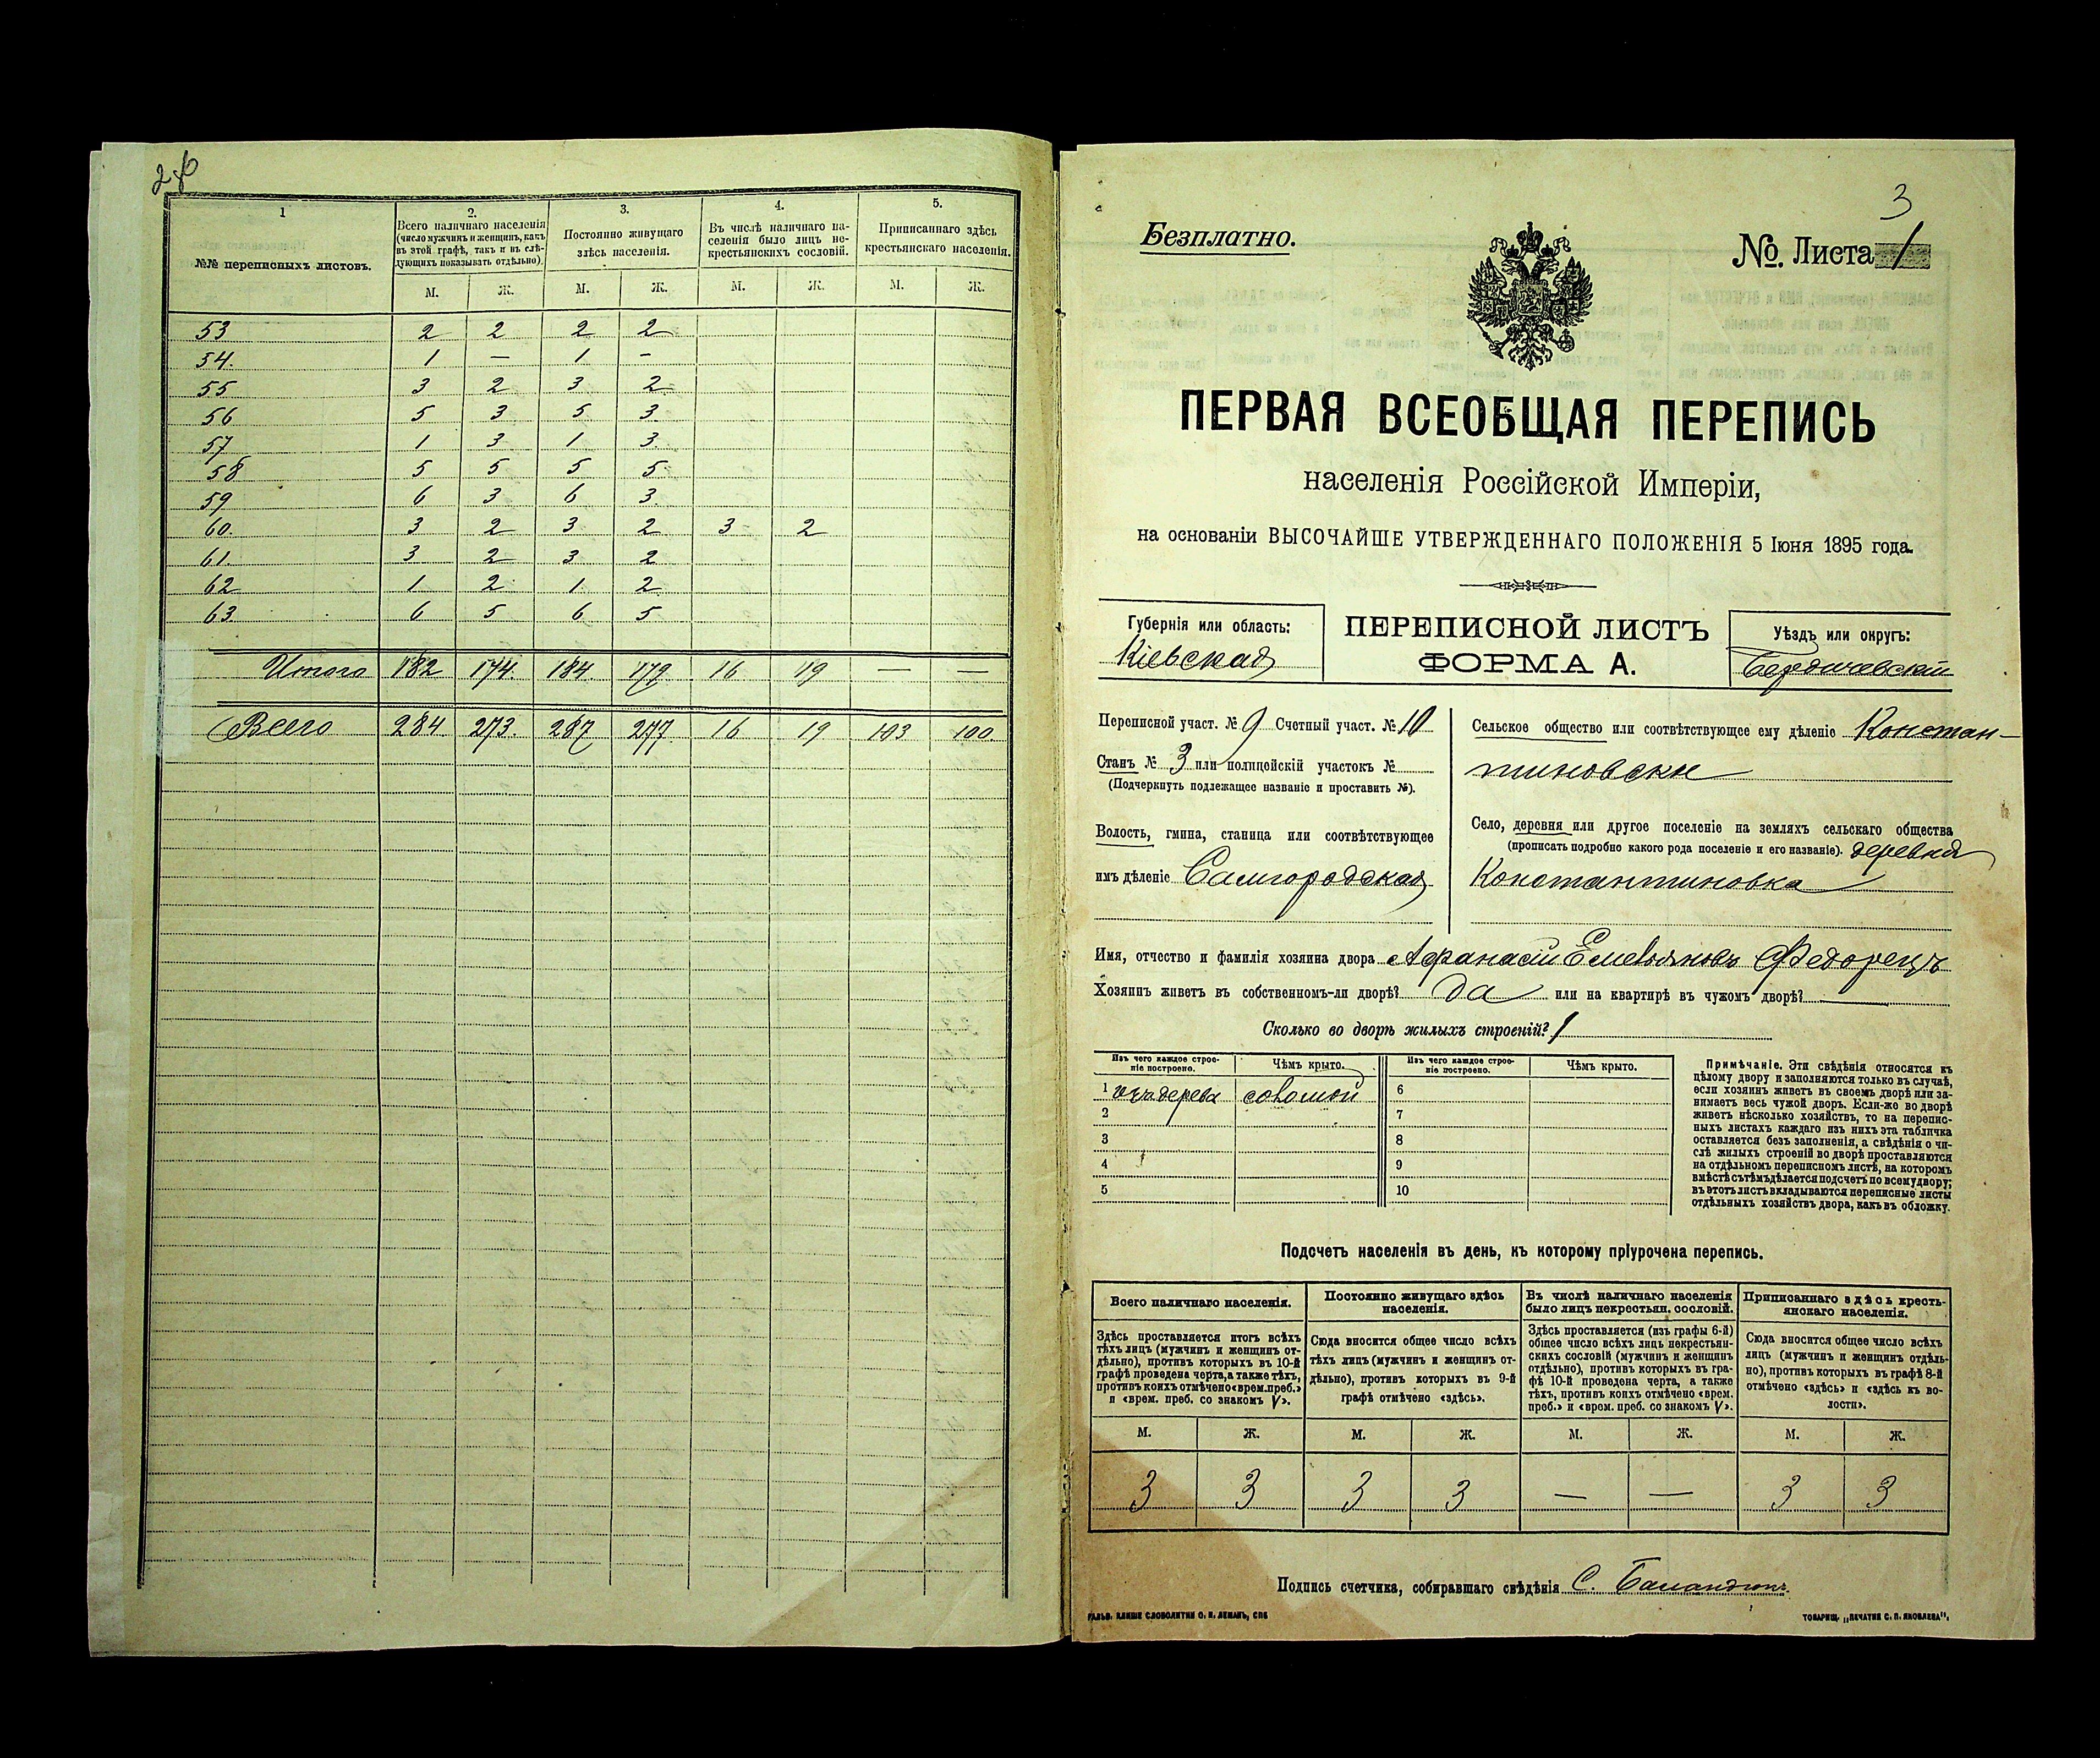 2об
1
2.
3.
4.
5.
№№ переписныхъ листовъ.
Всего наличнаго населенія
(число мужчинъ и женщинъ, какъ
въ этой графѣ, такъ и въ слѣ-
дующихъ показывать отдѣльно).
Постоянно живущаго
здѣсь населенія.
Въ числѣ наличнаго на-
селенія было лицъ не-
крестьянскихъ сословій.
Приписаннаго здѣсь
крестьянскаго населенія.
М. Ж. М. Ж. М. Ж. М. Ж.
53 2 2 2 2
54. 1 — 1 —
55 3 2 3 2
56 5 3 5 3
57 1 3 1 3
58 5 5 5 5
59 6 3 6 3
60. 3 2 3 2 3 2
61. 3 2 3 2
62 1 2 1 2
63 6 5 6 5
Итого 182 174 184 179 16 19 — —
Всего 284 273 287 277 16 19 103 100
3
Безплатно.
№. Листа 1
ПЕРВАЯ ВСЕОБЩАЯ ПЕРЕПИСЬ
населенія Россійской Имперіи,
на основаніи ВЫСОЧАЙШЕ УТВЕРЖДЕННАГО ПОЛОЖЕНІЯ 5 Іюня 1895 года.
Губернія или область:
Кіевская
ПЕРЕПИСНОЙ ЛИСТЪ
ФОРМА А.
Уѣздъ или округъ:
Бердичевскій
Переписной участ. № 9 Счетный участ. № 10
Станъ № 3 или полицейскій участокъ №
(Подчеркнуть подлежащее названіе и проставить №).
Волость, гмина, станица или соотвѣтствующее
имъ дѣленіе Самгородская
Сельское общество или соотвѣтствующее ему дѣленіе Констан-
тиновск
Село, деревня или другое поселеніе на земляхъ сельскаго общества
(прописать подробно какого рода поселеніе и его названіе). деревня
Константиновка
Имя, отчество и фамилія хозяина двора Афанасій Емельяновъ Федорецъ
Хозяинъ живетъ въ собственномъ-ли дворѣ? да или на квартирѣ въ чужомъ дворѣ? —
Сколько во дворѣ жилыхъ строеній? 1
Изъ чего каждое строе-
ніе построено.
Чѣмъ крыто.
Изъ чего каждое строе-
ніе построено.
Чѣмъ крыто.
1 изъ дерева соломой 6
2 7
3 8
4 9
5 10
Примѣчаніе. Эти свѣдѣнія относятся къ
цѣлому двору и заполняются только въ случаѣ,
если хозяинъ живетъ въ своемъ дворѣ или за-
нимаетъ весь чужой дворъ. Если-же во дворѣ
живетъ нѣсколько хозяйствъ, то на перепис-
ныхъ листахъ каждаго изъ нихъ эта табличка
оставляется безъ заполненія, а свѣдѣнія о чи-
слѣ жилыхъ строеній во дворѣ проставляются
на отдѣльномъ переписномъ листѣ, на которомъ
вмѣстѣ съ тѣмъ дѣлается подсчетъ по всему двору;
въ этотъ листъ вкладываются переписные листы
отдѣльныхъ хозяйствъ двора, какъ въ обложку.
Подсчетъ населенія въ день, къ которому пріурочена перепись.
Всего наличнаго населенія.
Постоянно живущаго здѣсь
населенія.
Въ числѣ наличнаго населенія
было лицъ некрестьян. сословій.
Приписаннаго здѣсь кресть-
янскаго населенія.
Здѣсь проставляется итогъ всѣхъ
тѣхъ лицъ (мужчинъ и женщинъ от-
дѣльно), противъ которыхъ въ 10-й
графѣ проведена черта, а также тѣхъ,
противъ коихъ отмѣчено «врем. преб.»
и «врем. преб. со знакомъ V».
Сюда вносится общее число всѣхъ
тѣхъ лицъ (мужчинъ и женщинъ от-
дѣльно), противъ которыхъ въ 9-й
графѣ отмѣчено «здѣсь».
Здѣсь проставляется (изъ графы 6-й)
общее число всѣхъ лицъ некрестьян-
скихъ сословій (мужчинъ и женщинъ
отдѣльно), противъ которыхъ въ гра-
фѣ 10-й проведена черта, а также
тѣхъ, противъ коихъ отмѣчено «врем.
преб.» и «врем. преб. со знакомъ V».
Сюда вносится общее число всѣхъ
лицъ (мужчинъ и женщинъ отдѣль-
но), противъ которыхъ въ графѣ 8-й
отмѣчено «здѣсь» и «здѣсь къ во-
лости».
М. Ж. М. Ж. М. Ж. М. Ж.
3 3 3 3 — — 3 3
Подпись счетчика, собиравшаго свѣдѣнія С.
ГАЛЬВ. КЛИШЕ СЛОВОЛИТНИ О. И. ЛЕМАНЪ, СПБ
ТОВАРИЩ. „ПЕЧАТНЯ С. П. ЯКОВЛЕВА“,